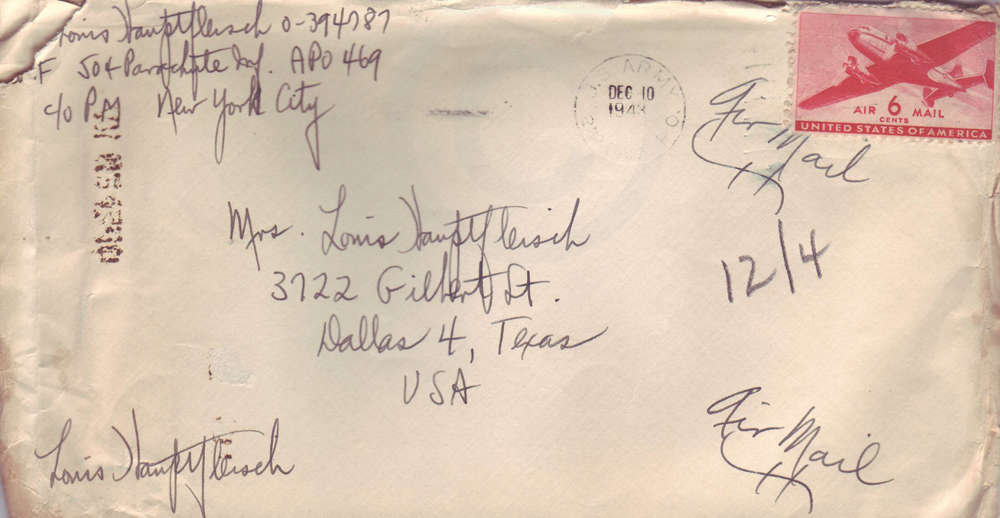 Louis Hauptfleisch O-394787
F 504 Parachute Inf. APO 469
c/o PM New York City
U.S. ARMY
DEC 10
1943
AIR 6 MAIL
CENTS
UNITED STATES OF AMERICA
Air Mail
Mrs. Louis Hauptfleisch
3722 Gilbert St.
Dallas 4, Texas
USA
12/4
Louis Hauptfleisch
Air Mail